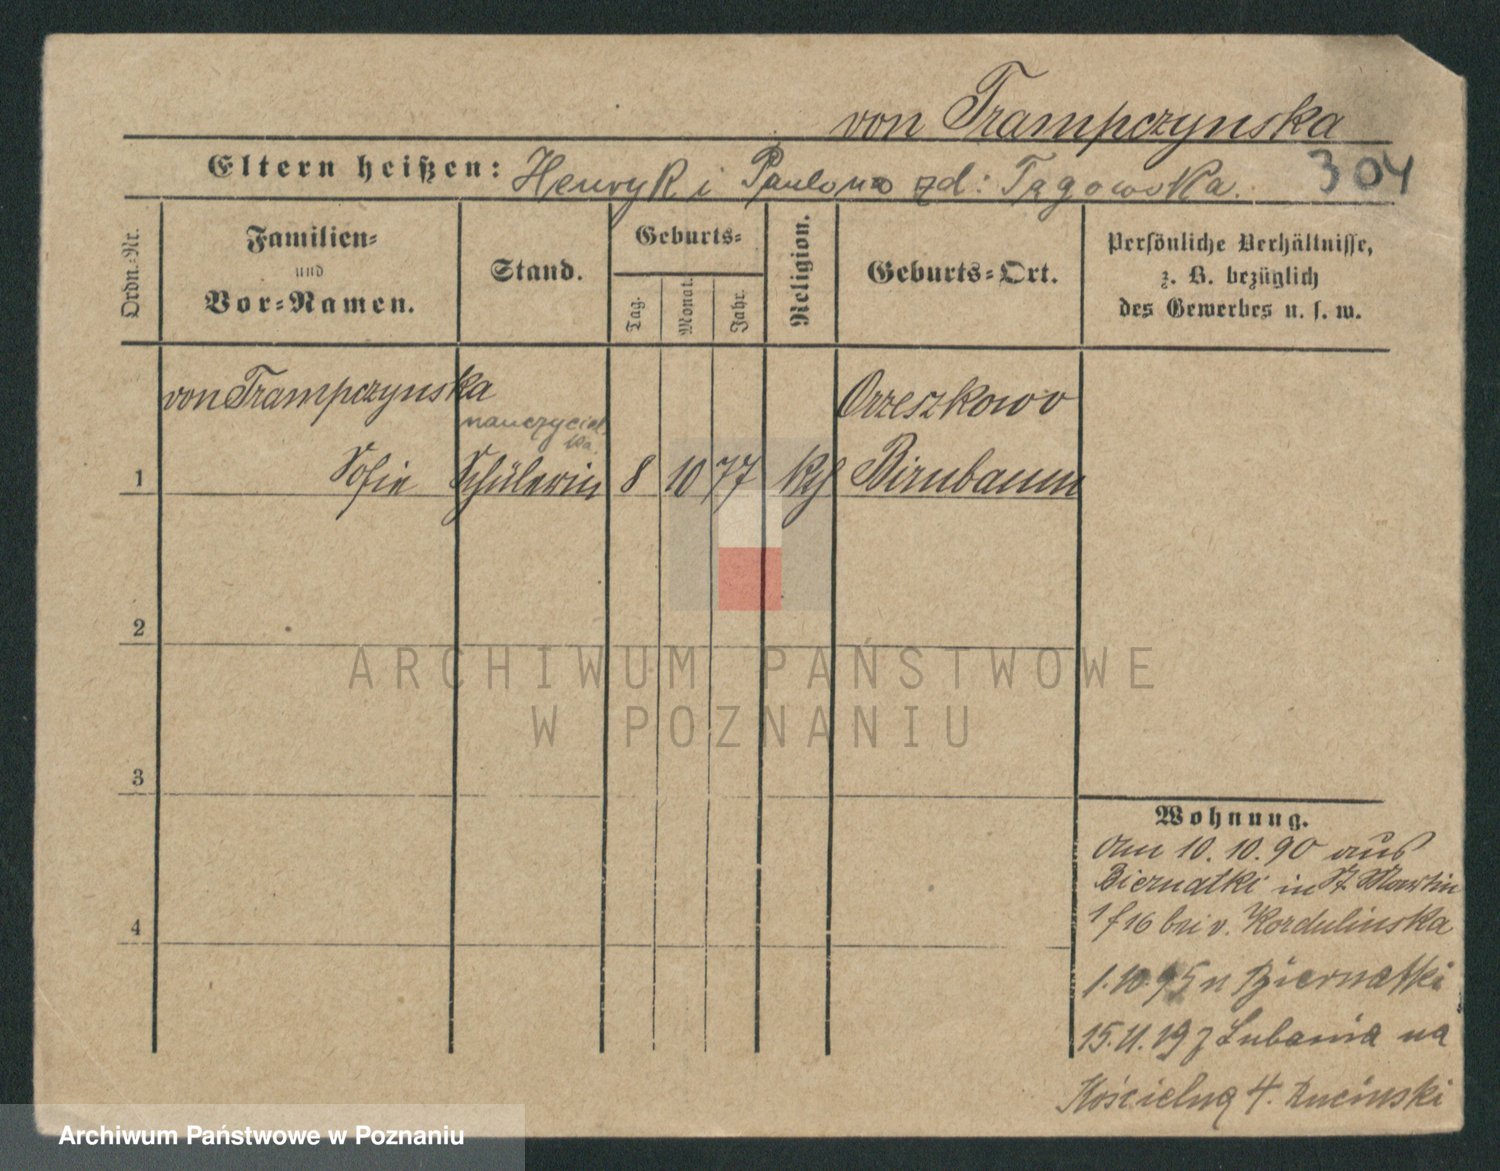 von Trampczynska
Eltern heißen: Henryk i Paulona zd: Tagowska. 304
Ordn.-Nr.
Familien-
und
Vor-Namen.
Stand.
Geburts-
Tag.
Monat.
Jahr.
Religion.
Geburts-Ort.
Persönliche Verhältnisse,
z. B. bezüglich
des Gewerbes u. s. w.
von Trampczynska
nauczyciel
ka
Orzeszkowo
1 Sofie Schülerin 8 10 77 Birnbaum
2
3
4
ARCHIWUM PAŃSTWOWE
W POZNANIU
Wohnung.
Am 10.10.90 aus
Biernatki in St. Martin
16 bei v. Kordulinska
1.10.95 n Biernatki
15.11.19 z Lubania na
Kościelną 4. Rucinski
Archiwum Państwowe w Poznaniu